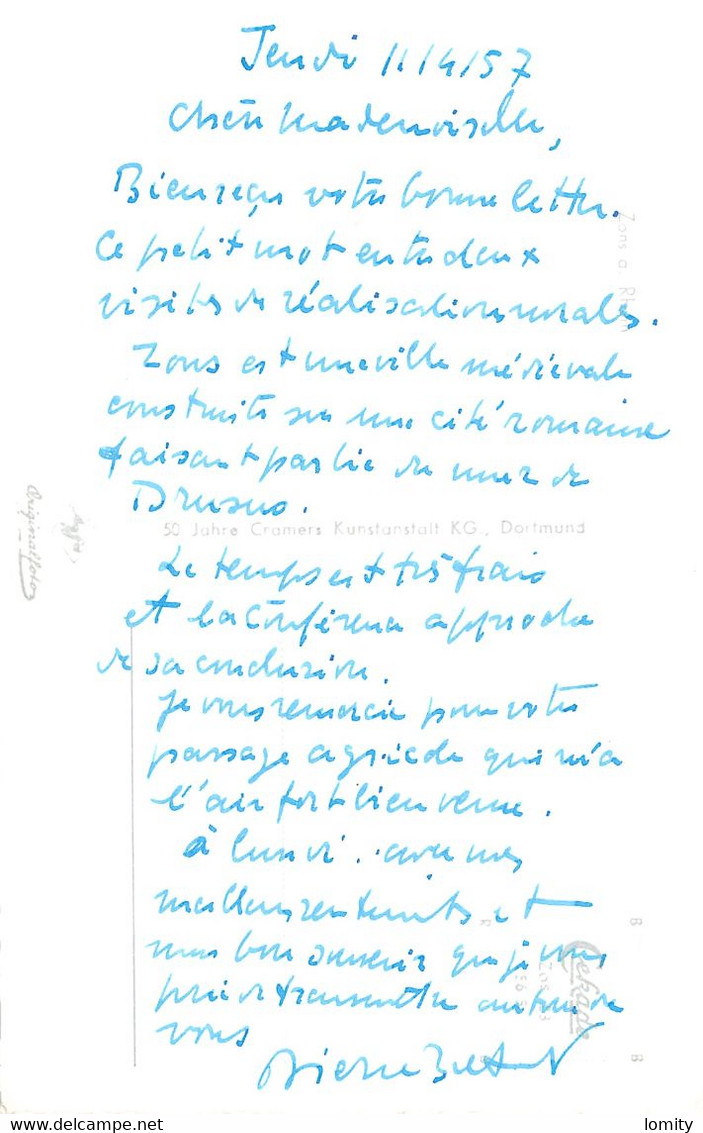 Jeudi 11/4/57
Chère Mademoiselle,
Bien reçu votre bonne lettre.
Ce petit mot entre deux
visites de réalisations rurales.
Zons est une ville médiévale
construite sur une cité romaine
faisant partie du mur de
Drusus.
50 Jahre Cramers Kunstanstalt KG., Dortmund
Le temps est très frais
et la Conférence approche
de sa conclusion.
Je vous remercie pour votre
passage agricole qui m'a
l'air fort bien venu.
à lundi. avec mes
meilleurs sentiments et
mon bon souvenir que je vous
prie de transmettre autour de
vous
Pierre
Zons a. Rhein
Originalfoto
Cekade
B
B
B
delcampe.net
lomity